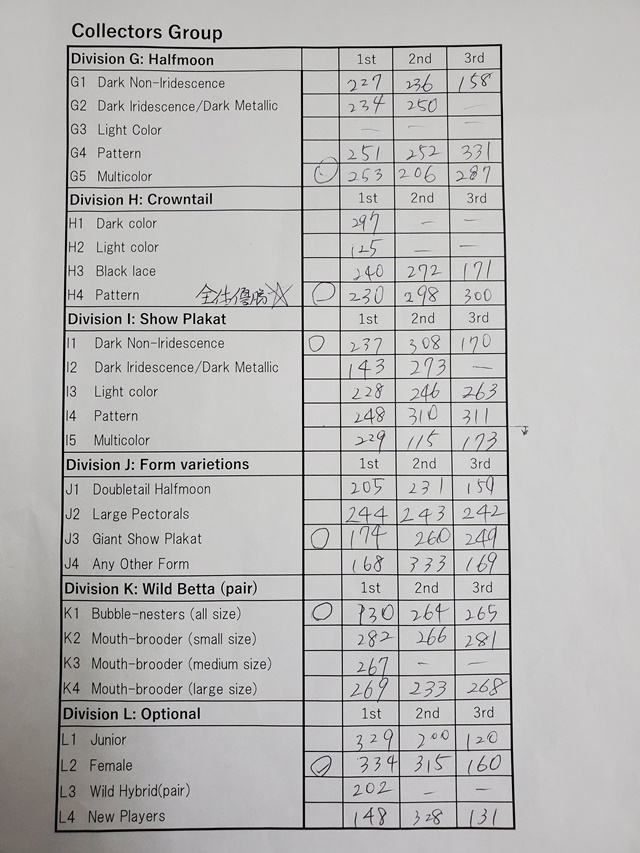 Collectors Group
Division G: Halfmoon 1st 2nd 3rd
G1 Dark Non-Iridescence 227 236 158
G2 Dark Iridescence/Dark Metallic 234 250 —
G3 Light Color — — —
G4 Pattern 251 252 331
G5 Multicolor 253 206 287
Division H: Crowntail 1st 2nd 3rd
H1 Dark color 297 — —
H2 Light color 125 — —
H3 Black lace 240 272 171
H4 Pattern 全体優勝☆ 230 298 300
Division I: Show Plakat 1st 2nd 3rd
I1 Dark Non-Iridescence 237 308 170
I2 Dark Iridescence/Dark Metallic 143 273 —
I3 Light color 228 246 263
I4 Pattern 248 310 311
I5 Multicolor 229 115 173
Division J: Form varietions 1st 2nd 3rd
J1 Doubletail Halfmoon 205 231 159
J2 Large Pectorals 244 243 242
J3 Giant Show Plakat 174 260 249
J4 Any Other Form 168 333 169
Division K: Wild Betta (pair) 1st 2nd 3rd
K1 Bubble-nesters (all size) 130 264 265
K2 Mouth-brooder (small size) 282 266 281
K3 Mouth-brooder (medium size) 267 — —
K4 Mouth-brooder (large size) 269 233 268
Division L: Optional 1st 2nd 3rd
L1 Junior 329 200 120
L2 Female 334 315 160
L3 Wild Hybrid(pair) 202 — —
L4 New Players 148 328 131